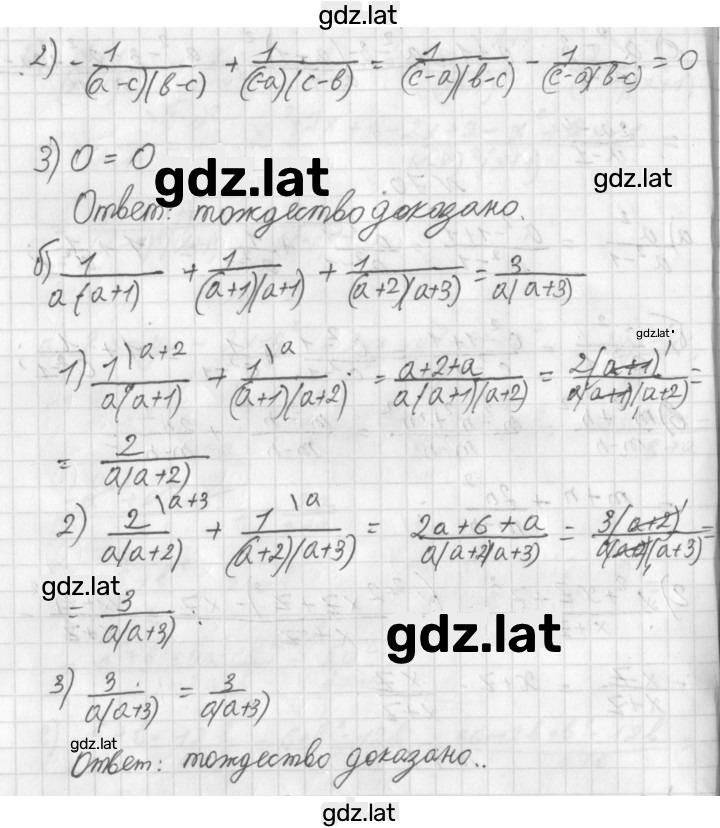 gdz.lat
2) - 1/((a-c)(b-c)) + 1/((c-a)(c-b)) = 1/((c-a)(b-c)) - 1/((c-a)(b-c)) = 0
3) 0 = 0
gdz.lat
gdz.lat
Ответ: тождество доказано.
б) 1/(a(a+1)) + 1/((a+1)(a+1)) + 1/((a+2)(a+3)) = 3/(a(a+3))
gdz.lat
1) 1\a+2/(a(a+1)) + 1\a/((a+1)(a+2)) = (a+2+a)/(a(a+1)(a+2)) = 2(a+1)/(a(a+1)(a+2)) =
= 2/(a(a+2))
2) 2\a+3/(a(a+2)) + 1\a/((a+2)(a+3)) = (2a+6+a)/(a(a+2)(a+3)) = 3(a+2)/(a(a+2)(a+3)) =
gdz.lat
= 3/(a(a+3)).
gdz.lat
3) 3/(a(a+3)) = 3/(a(a+3))
gdz.lat
Ответ: тождество доказано..
gdz.lat